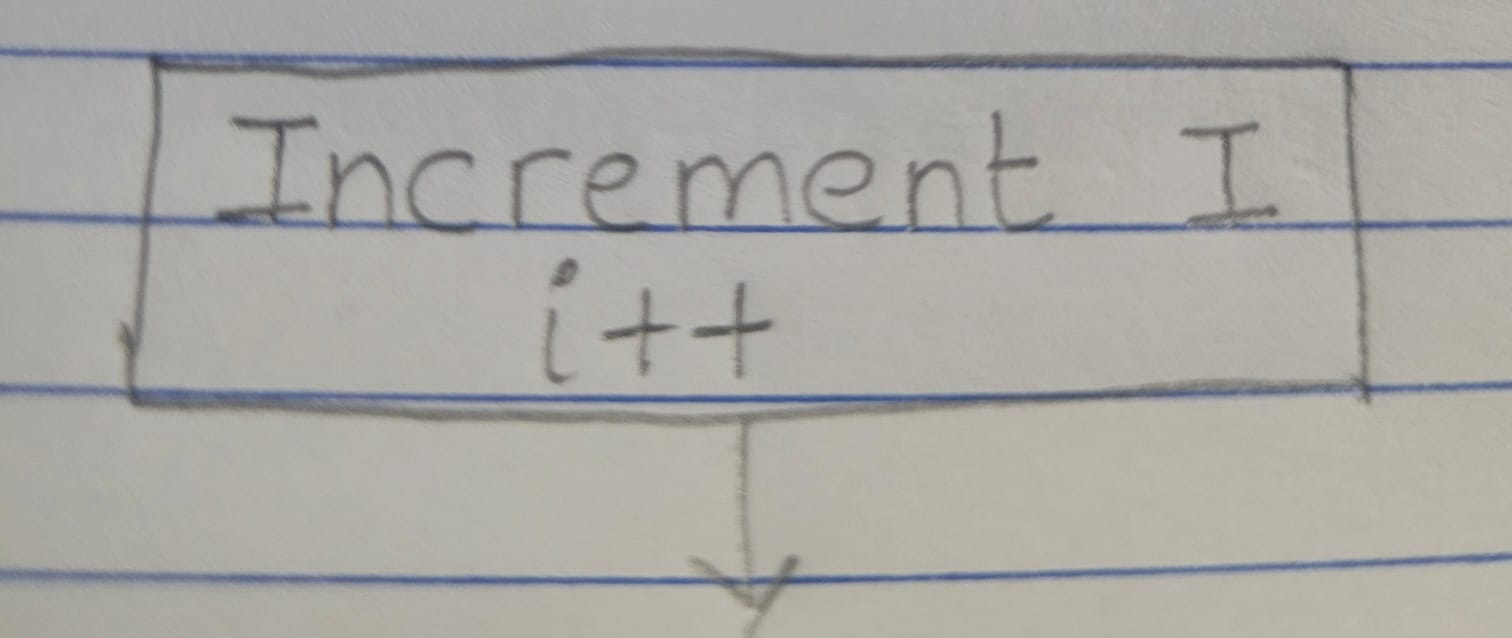 Increment I
i++